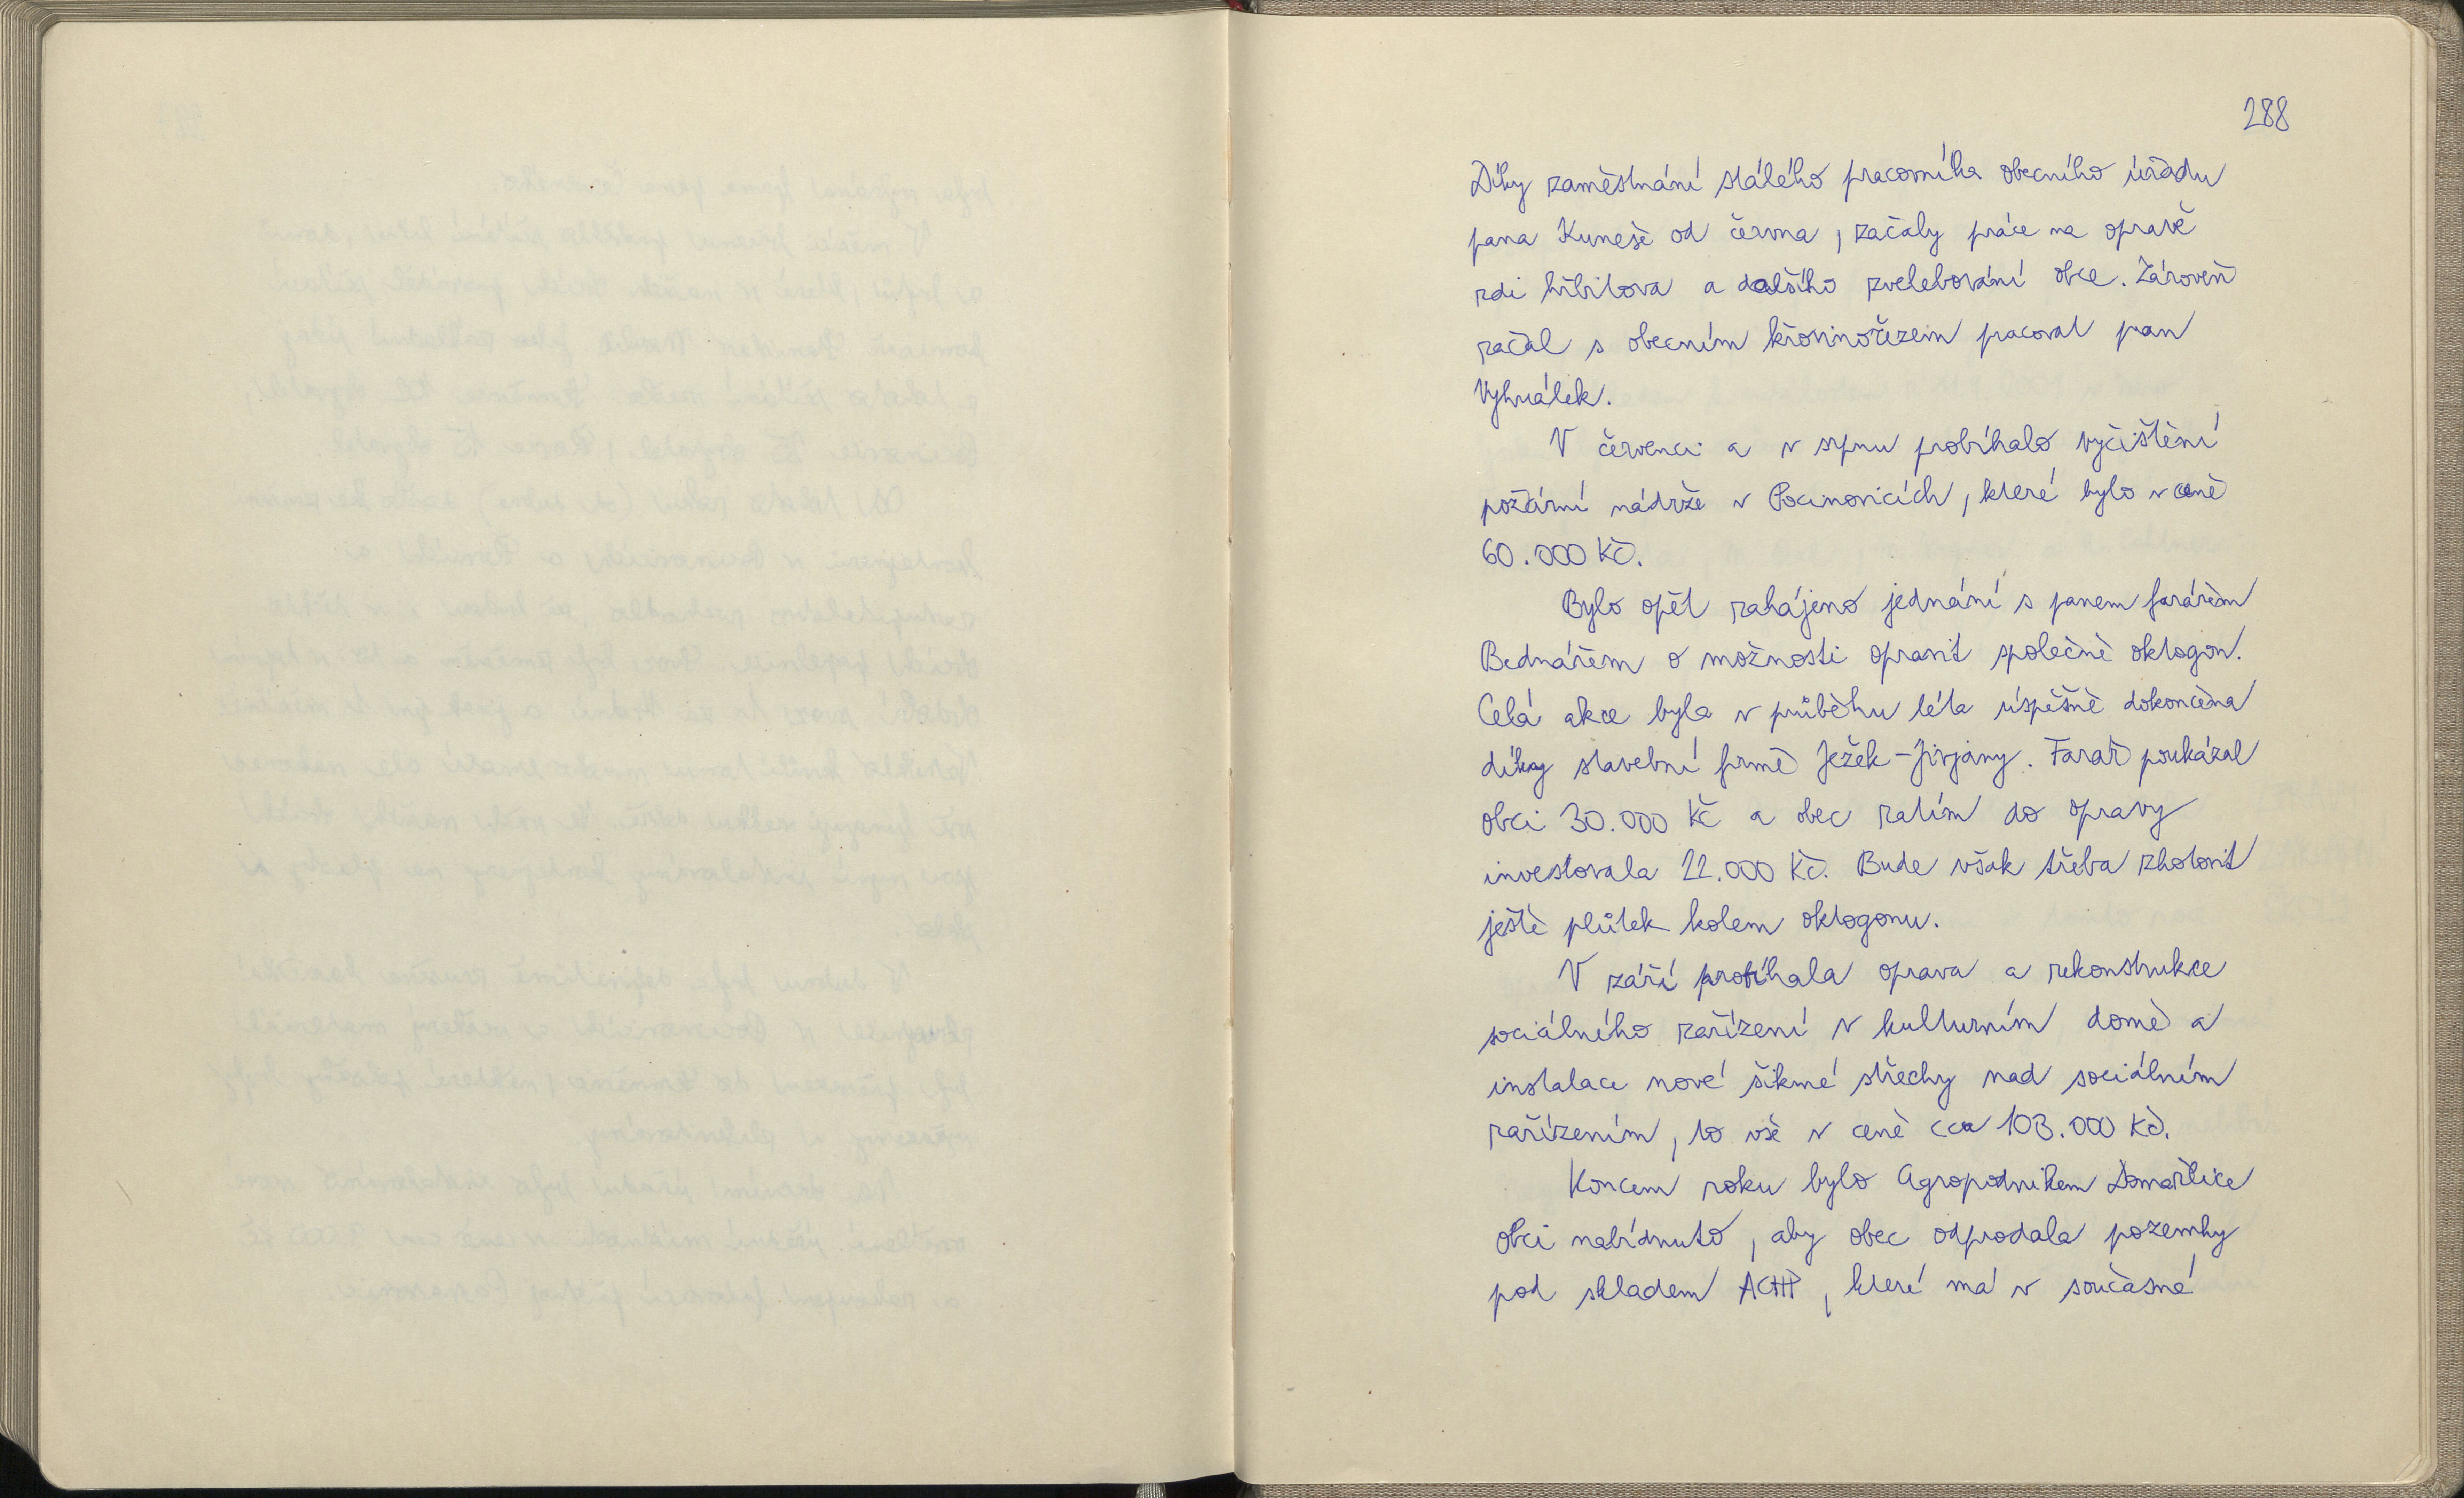 288
Díky zaměstnání stálého pracovníka obecního úřadu
pana Kuneše od června, začaly práce na opravě
zdi hřbitova a dalšího zvelebování obce. Zároveň
začal s obecním křovinořezem pracovat pan
Vyhnálek.
V červenci a v srpnu probíhalo vyčištění
požární nádrže v Pocinovicích, které bylo v ceně
60.000 Kč.
Bylo opět zahájeno jednání s panem farářem
Bednářem o možnosti opravit společně oktogon.
Celá akce byla v průběhu léta úspěšně dokončena
díky stavební firmě Ježek-Jivjany. Farář poukázal
obci 30.000 Kč a obec zatím do opravy
investovala 22.000 Kč. Bude však třeba zhotovit
ještě plůtek kolem oktogonu.
V září probíhala oprava a rekonstrukce
sociálního zařízení v kulturním domě a
instalace nové šikmé střechy nad sociálním
zařízením, to vše v ceně cca 103.000 Kč.
Koncem roku bylo Agropodnikem Domažlice
obci nabídnuto, aby obec odprodala pozemky
pod skladem ACHP, které má v současné